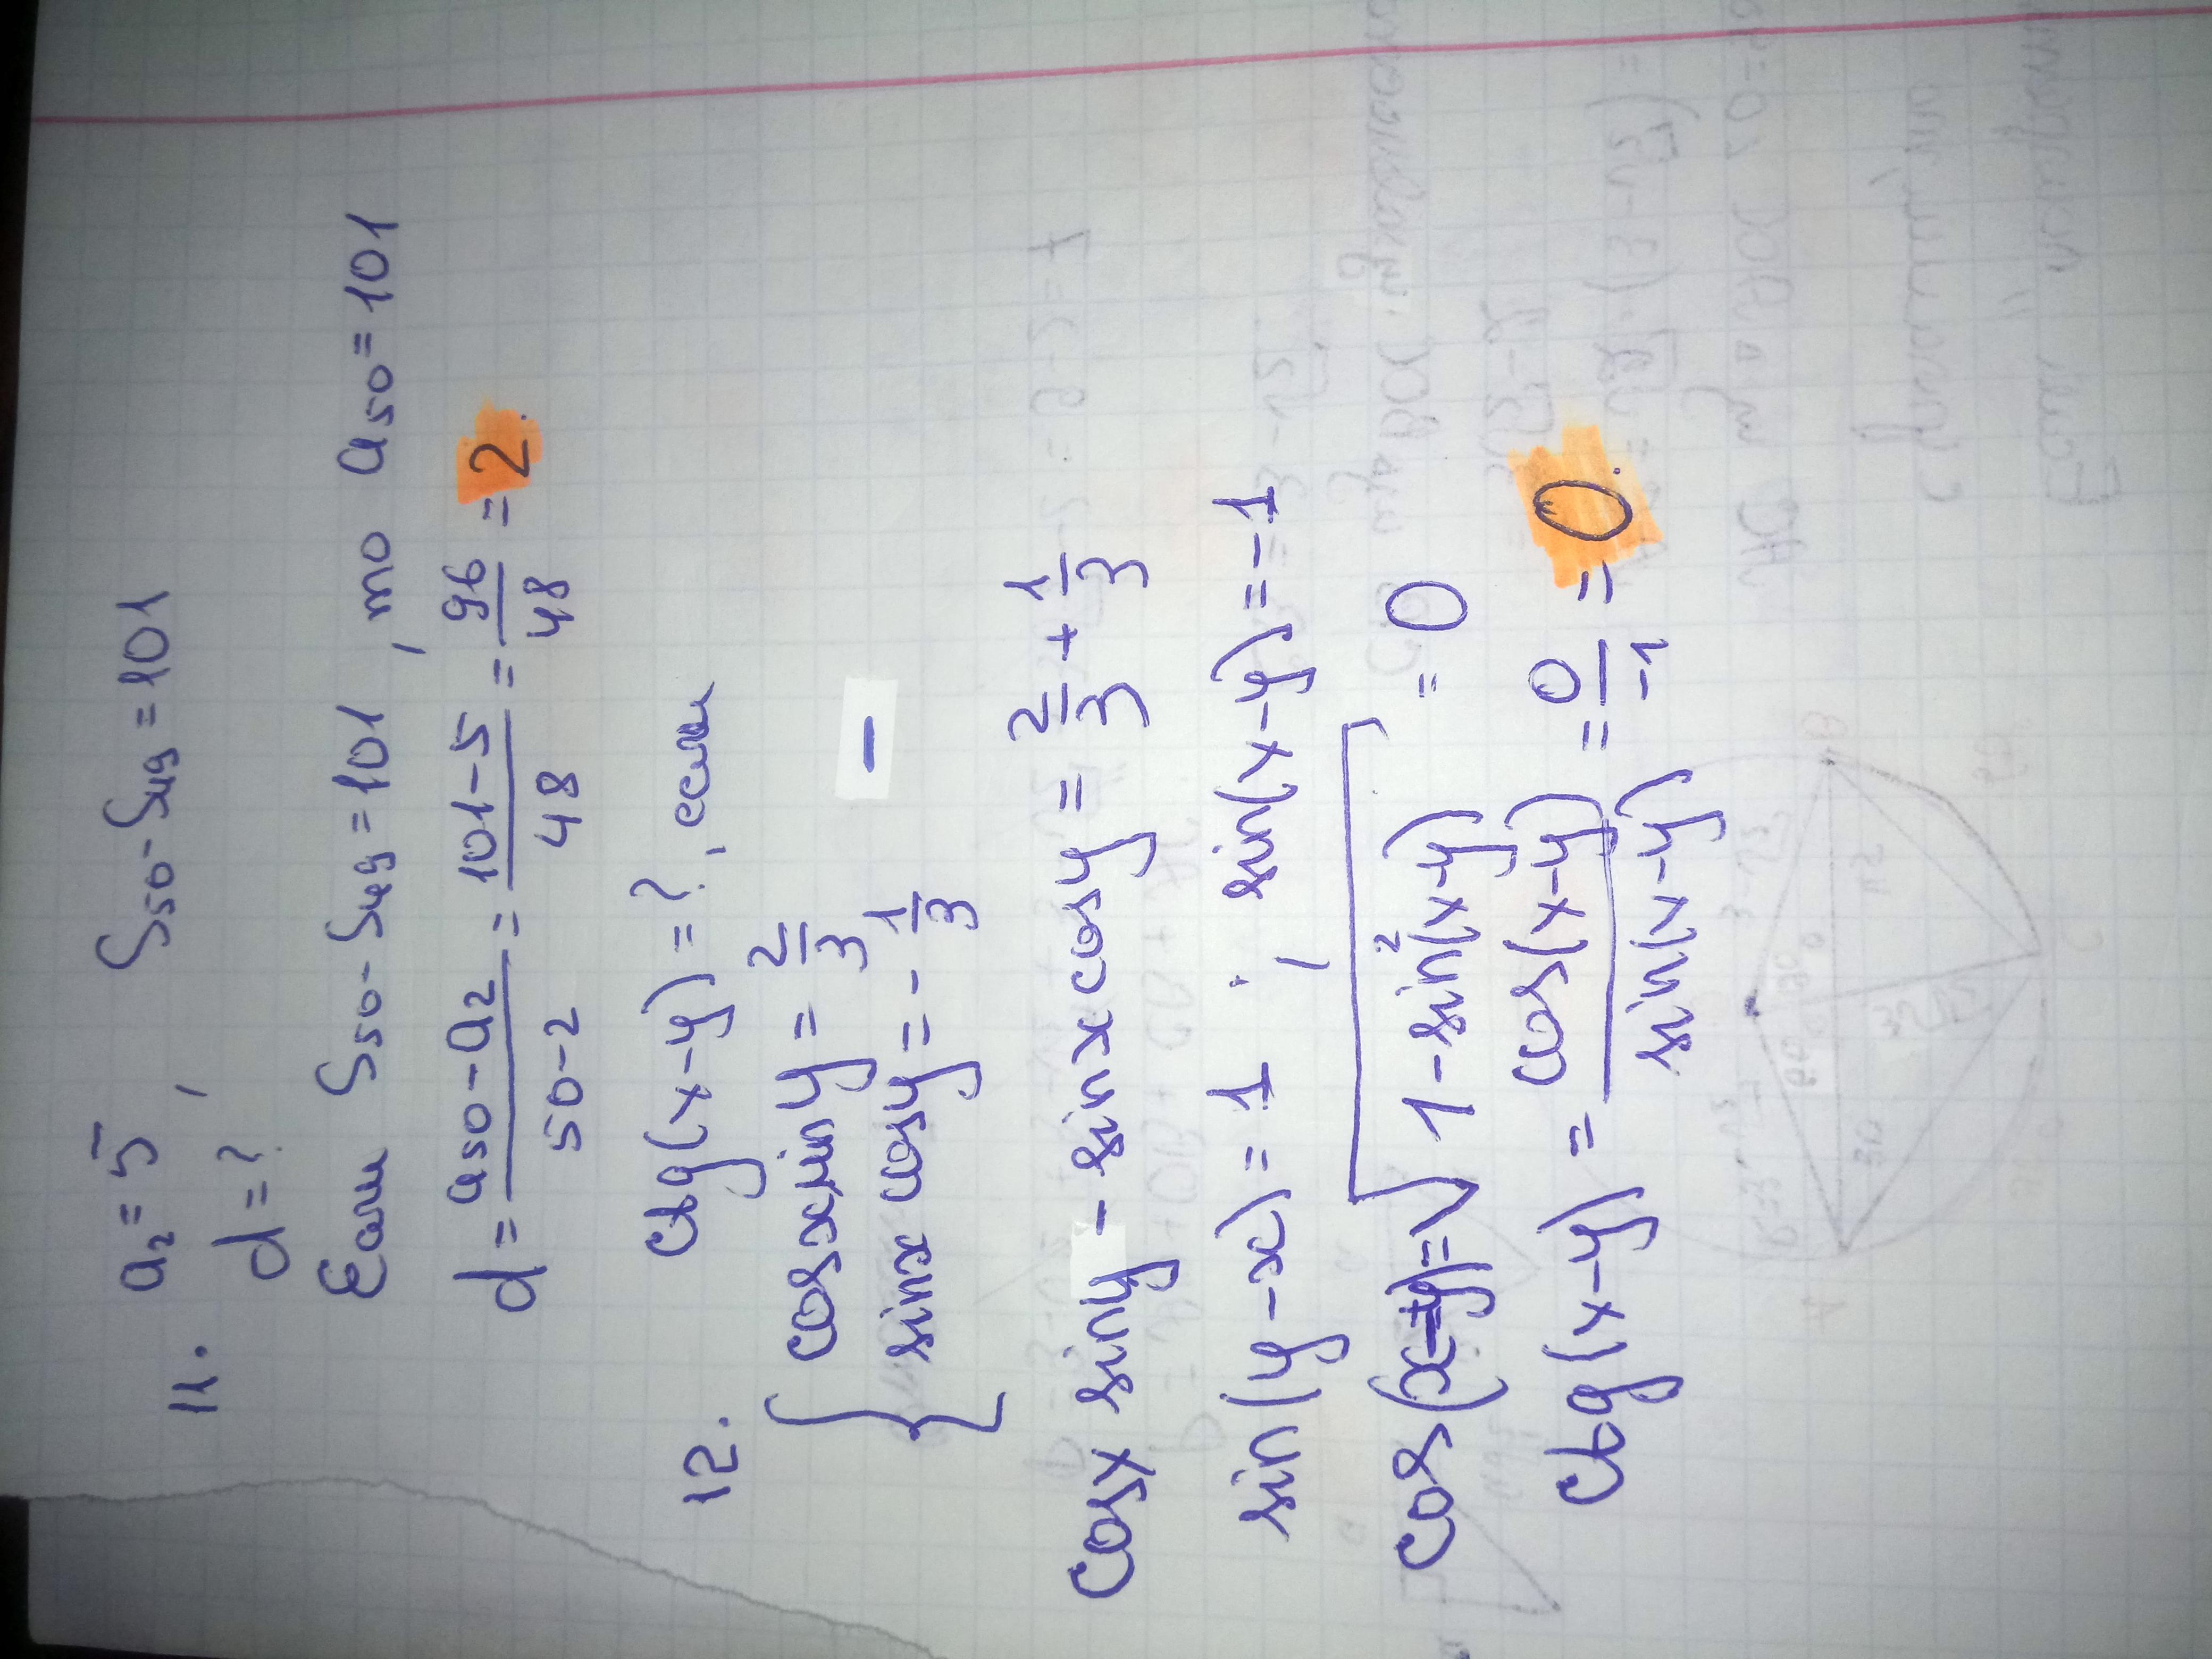 11. a₂=5, S₅₀-S₄₉=101
d=?
Если S₅₀-S₄₉=101, то a₅₀=101
d=\frac{a₅₀-a₂}{50-2}=\frac{101-5}{48}=\frac{96}{48}=2.
12. ctg(x-y)=?, если
{cosxsiny=\frac{2}{3}
sinx cosy=-\frac{1}{3} -
cosx siny - sinx cosy=\frac{2}{3}+\frac{1}{3}
sin(y-x)=1 ; sin(x-y)=-1
cos(x-y)=\sqrt{1-sin²(x-y)}=0
ctg(x-y)=\frac{cos(x-y)}{sin(x-y)}=\frac{0}{-1}=0.